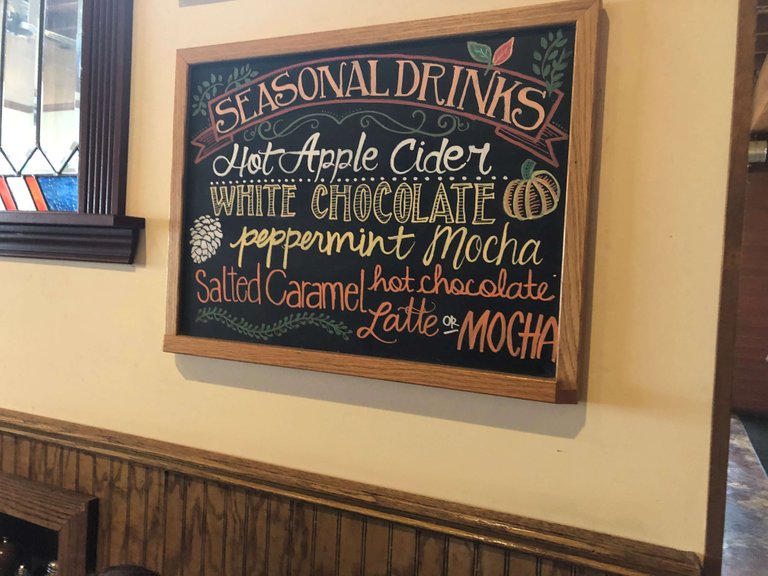 SEASONAL DRINKS
Hot Apple Cider
WHITE CHOCOLATE
peppermint Mocha
Salted Caramel hot chocolate
Latte OR MOCHA